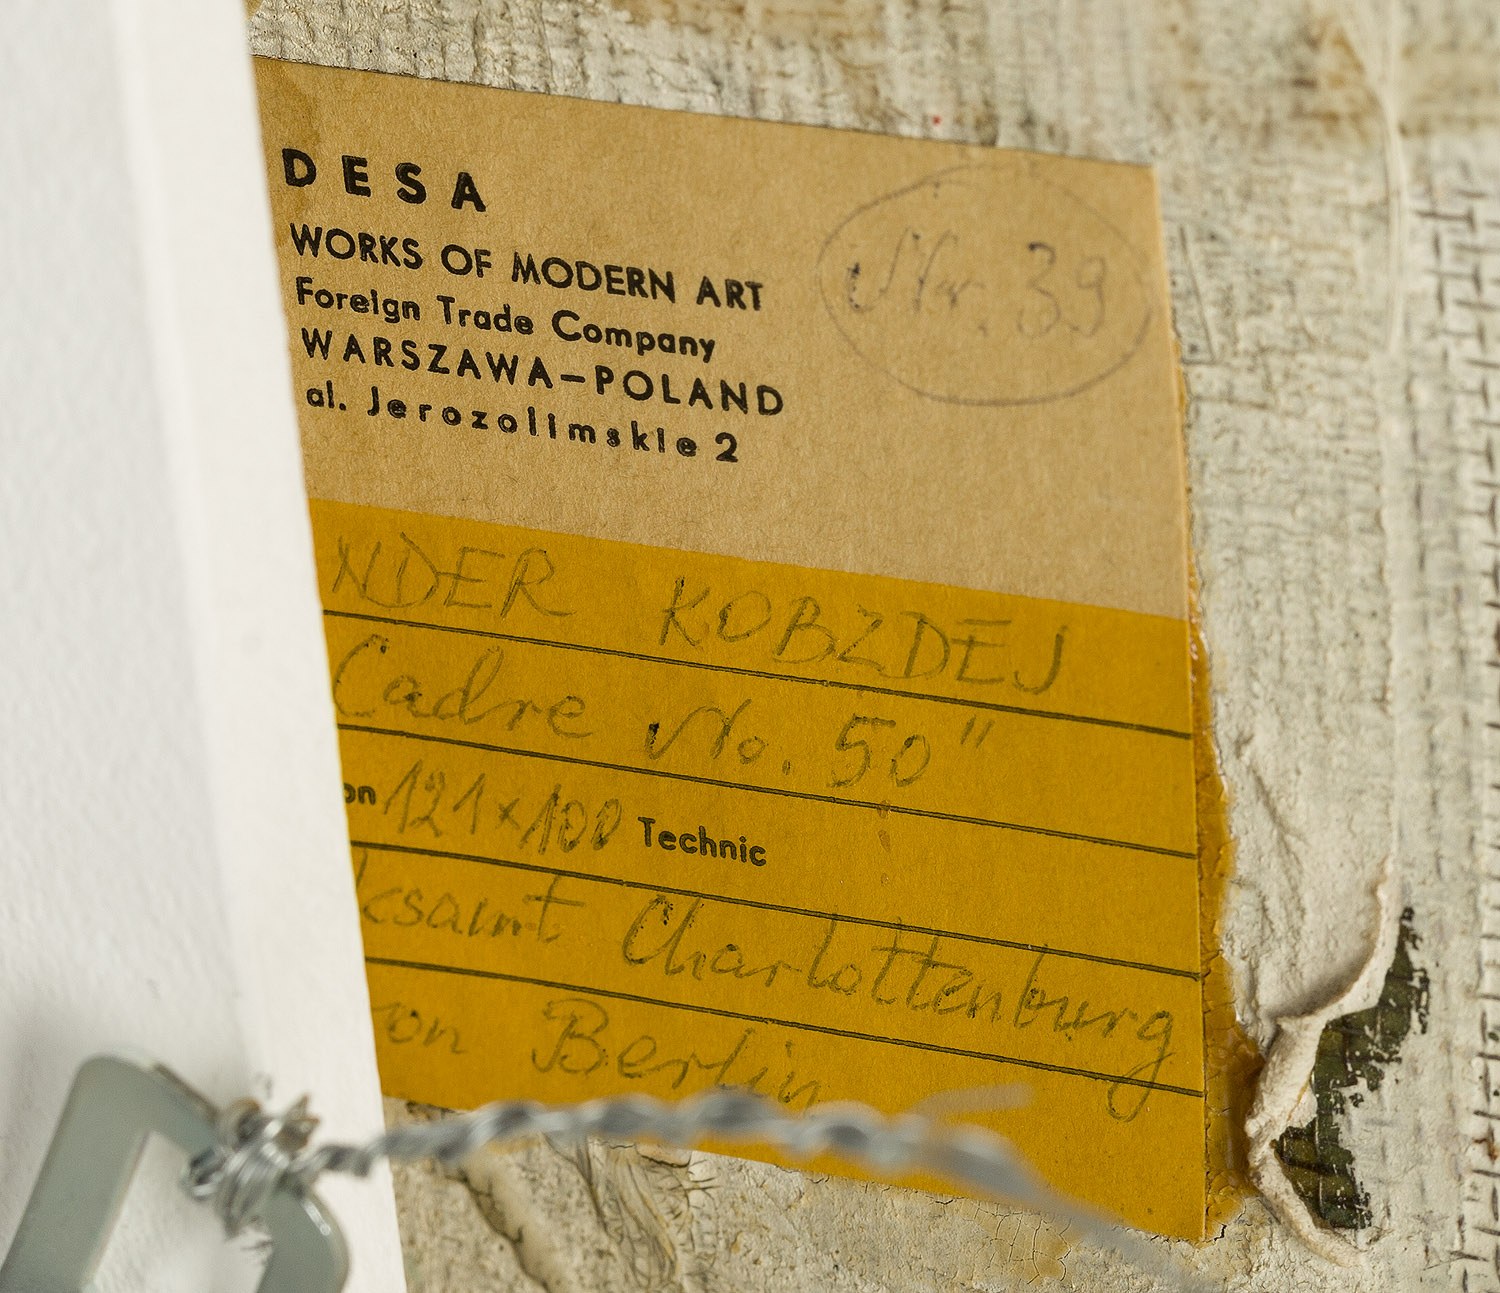 DESA
WORKS OF MODERN ART
Foreign Trade Company
WARSZAWA–POLAND
al. Jerozolimskie 2
Nr. 39
NDER KOBZDEJ
Cadre No. 50"
on 121×100 Technic
ksamt Charlottenburg
von Berlin